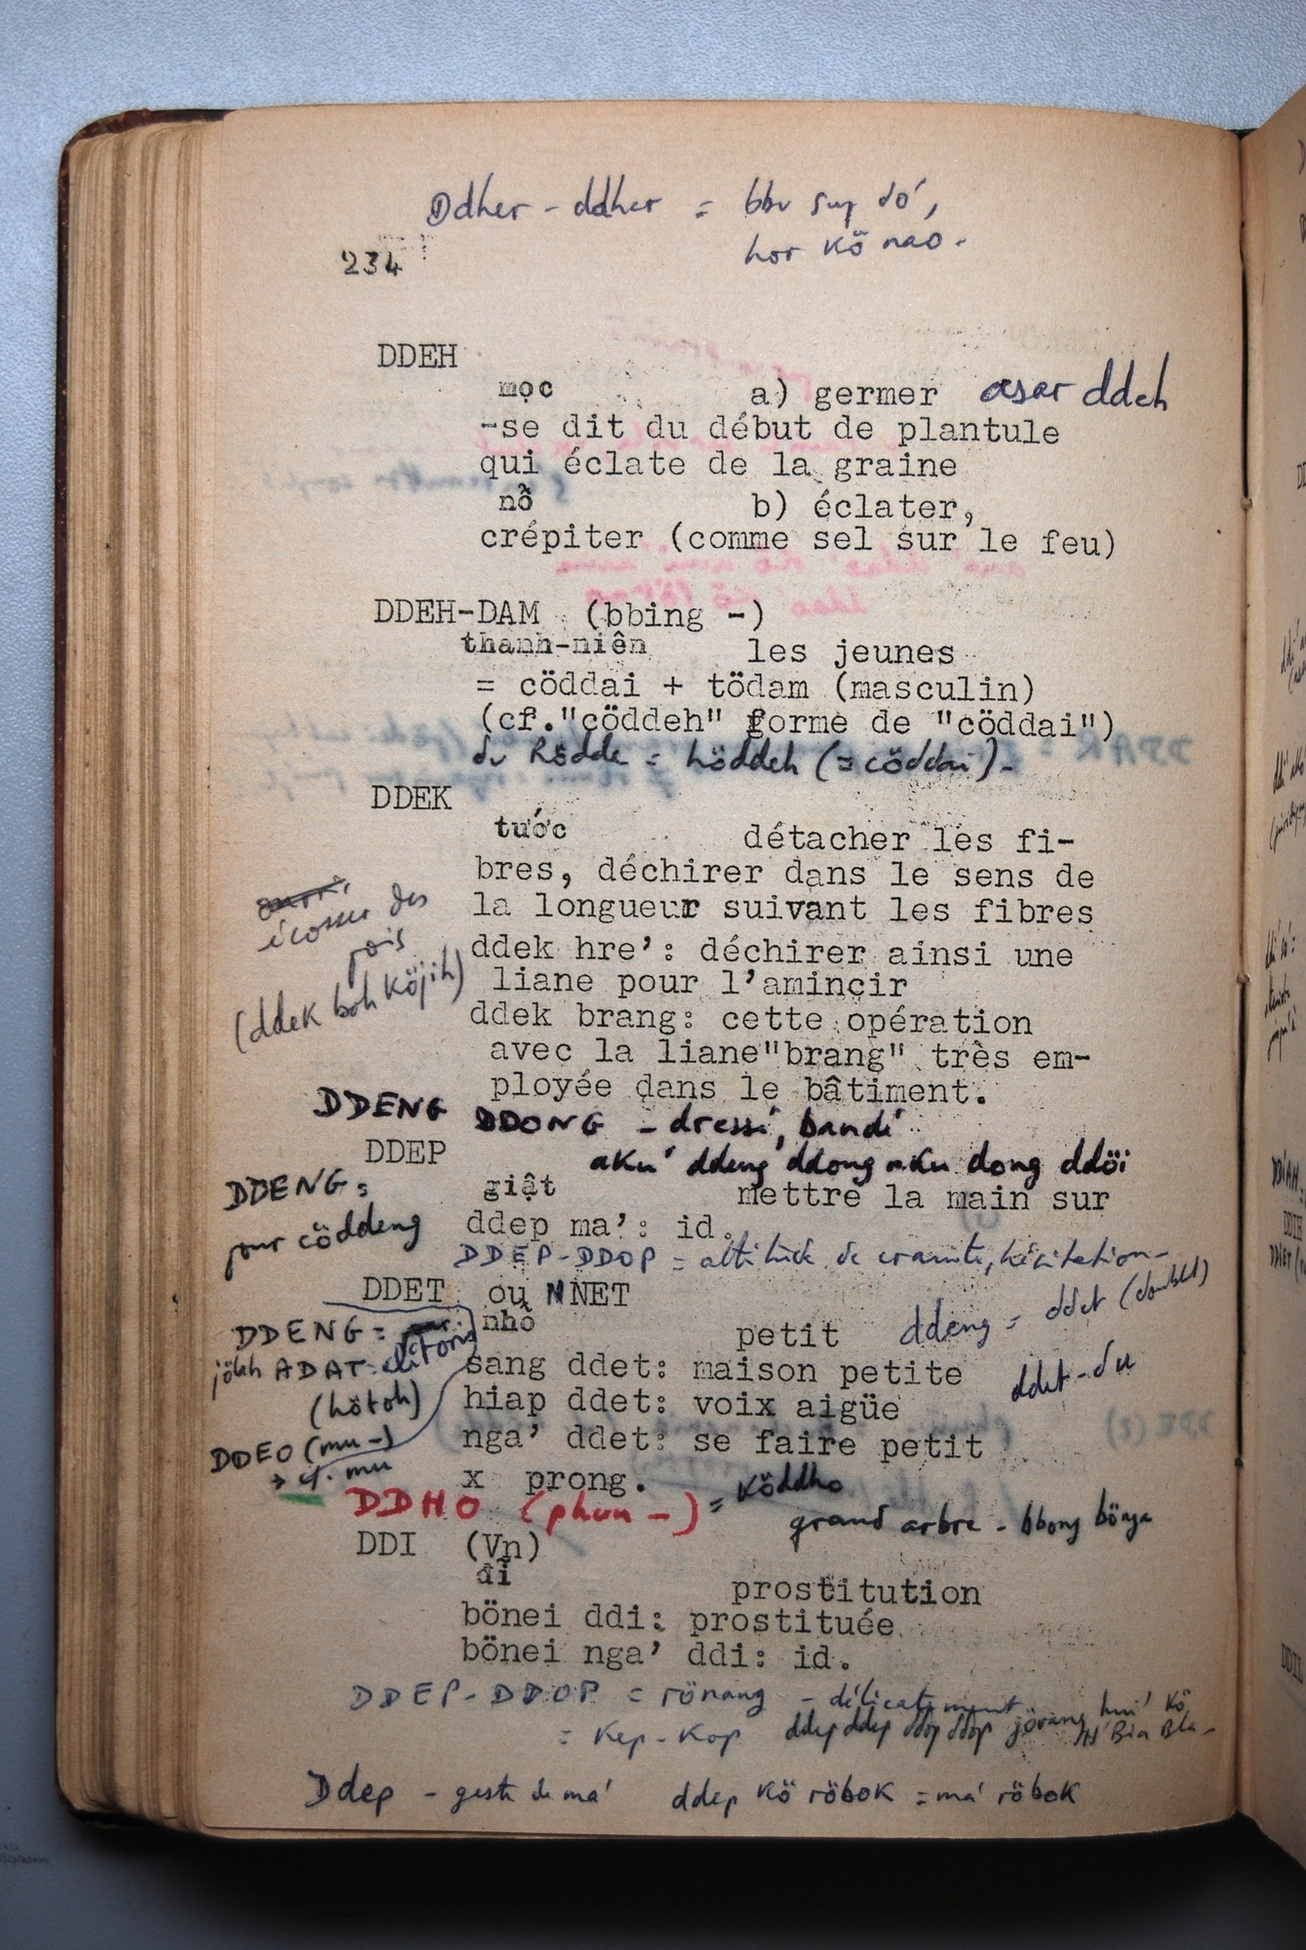 Ddher - ddher = bbu sup dö',
hor kö nao.
234
DDEH
mọc a) germer asar ddeh
-se dit du début de plantule
qui éclate de la graine
nổ b) éclater,
crépiter (comme sel sur le feu)
DDEH-DAM (bbing -)
thanh-niên les jeunes
= cöddai + tödam (masculin)
(cf."cöddeh" forme de "cöddai")
du Rödde = höddeh (= cöddai).
DDEK
tước détacher les fi-
bres, déchirer dans le sens de
la longueur suivant les fibres
écosser des
pois
(ddek boh köjih)
ddek hre': déchirer ainsi une
liane pour l'amincir
ddek brang: cette opération
avec la liane"brang" très em-
ployée dans le bâtiment.
DDENG DDONG - dressé, bandé
DDEP aku' ddeng ddong aku dong ddöi
DDENG =
pour cöddeng
giật mettre la main sur
ddep ma': id.
DDEP-DDOP = attitude de crainte, hésitation-
DDET ou NNET
nhỏ petit ddeng = ddet (doublet)
DDENG =
jölah ADAT clitoris
(hötoh)
sang ddet: maison petite ddet-du
hiap ddet: voix aigüe
DDEO (mu-)
→ cf. mu
nga' ddet: se faire petit
x prong.
DDHO (phun -) = köddho
grand arbre - bbong bönga
DDI (Vn)
đĩ prostitution
bönei ddi: prostituée
bönei nga' ddi: id.
DDEP-DDOP = rönang - délicatement
= kep-kop ddep ddep ddop ddop jörang hui' kö H' Bia Bla-
Ddep - geste de ma' ddep kö röbok = ma' röbok